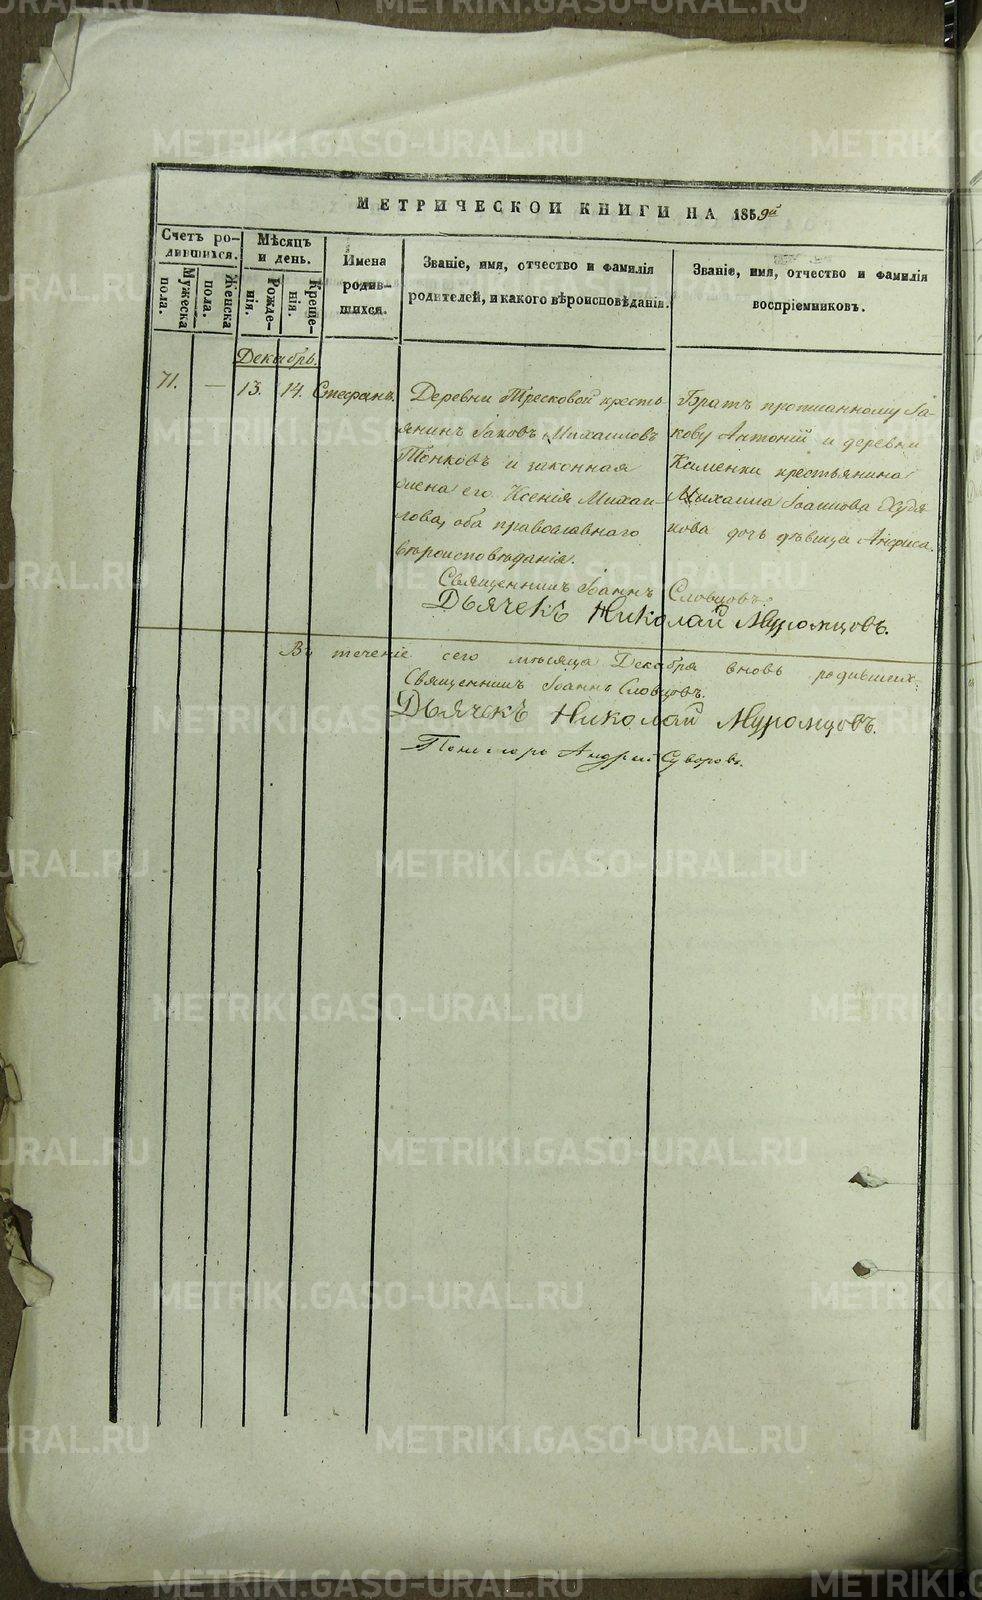 METRIKI.GASO-URAL.RU
МЕТРИЧЕСКОЙ КНИГИ НА 1859й
Счетъ ро-
дившихся.
Мужеска
пола.
Женска
пола.
Мѣсяцъ
и день.
Рожде-
нія.
Креще-
нія.
Имена
родив-
шихся.
Званіе, имя, отчество и фамилія
родителей, и какого вѣроисповѣданія.
Званіе, имя, отчество и фамилія
воспріемниковъ.
Декабрь.
71. — 13. 14. Стефанъ.
Деревни Тресковой кресть
янинъ Іаковъ Михаиловъ
Тонковъ и законная
жена его Ксенія Михаи-
лова, оба православнаго
вѣроисповѣданія.
Братъ прописанному Іа-
кову Антоній и деревни
Каменки крестьянина
Михаила Іоаннова Худя
кова дочь дѣвица Анфиса.
Священникъ Іоаннъ Словцовъ.
Дьячекъ Николай Муромцовъ.
Въ теченіе сего мѣсяца Декабря вновь родивших:
Священникъ Іоаннъ Словцовъ.
Дьячекъ Николай Муромцовъ.
Пономарь Андрей Суворовъ.